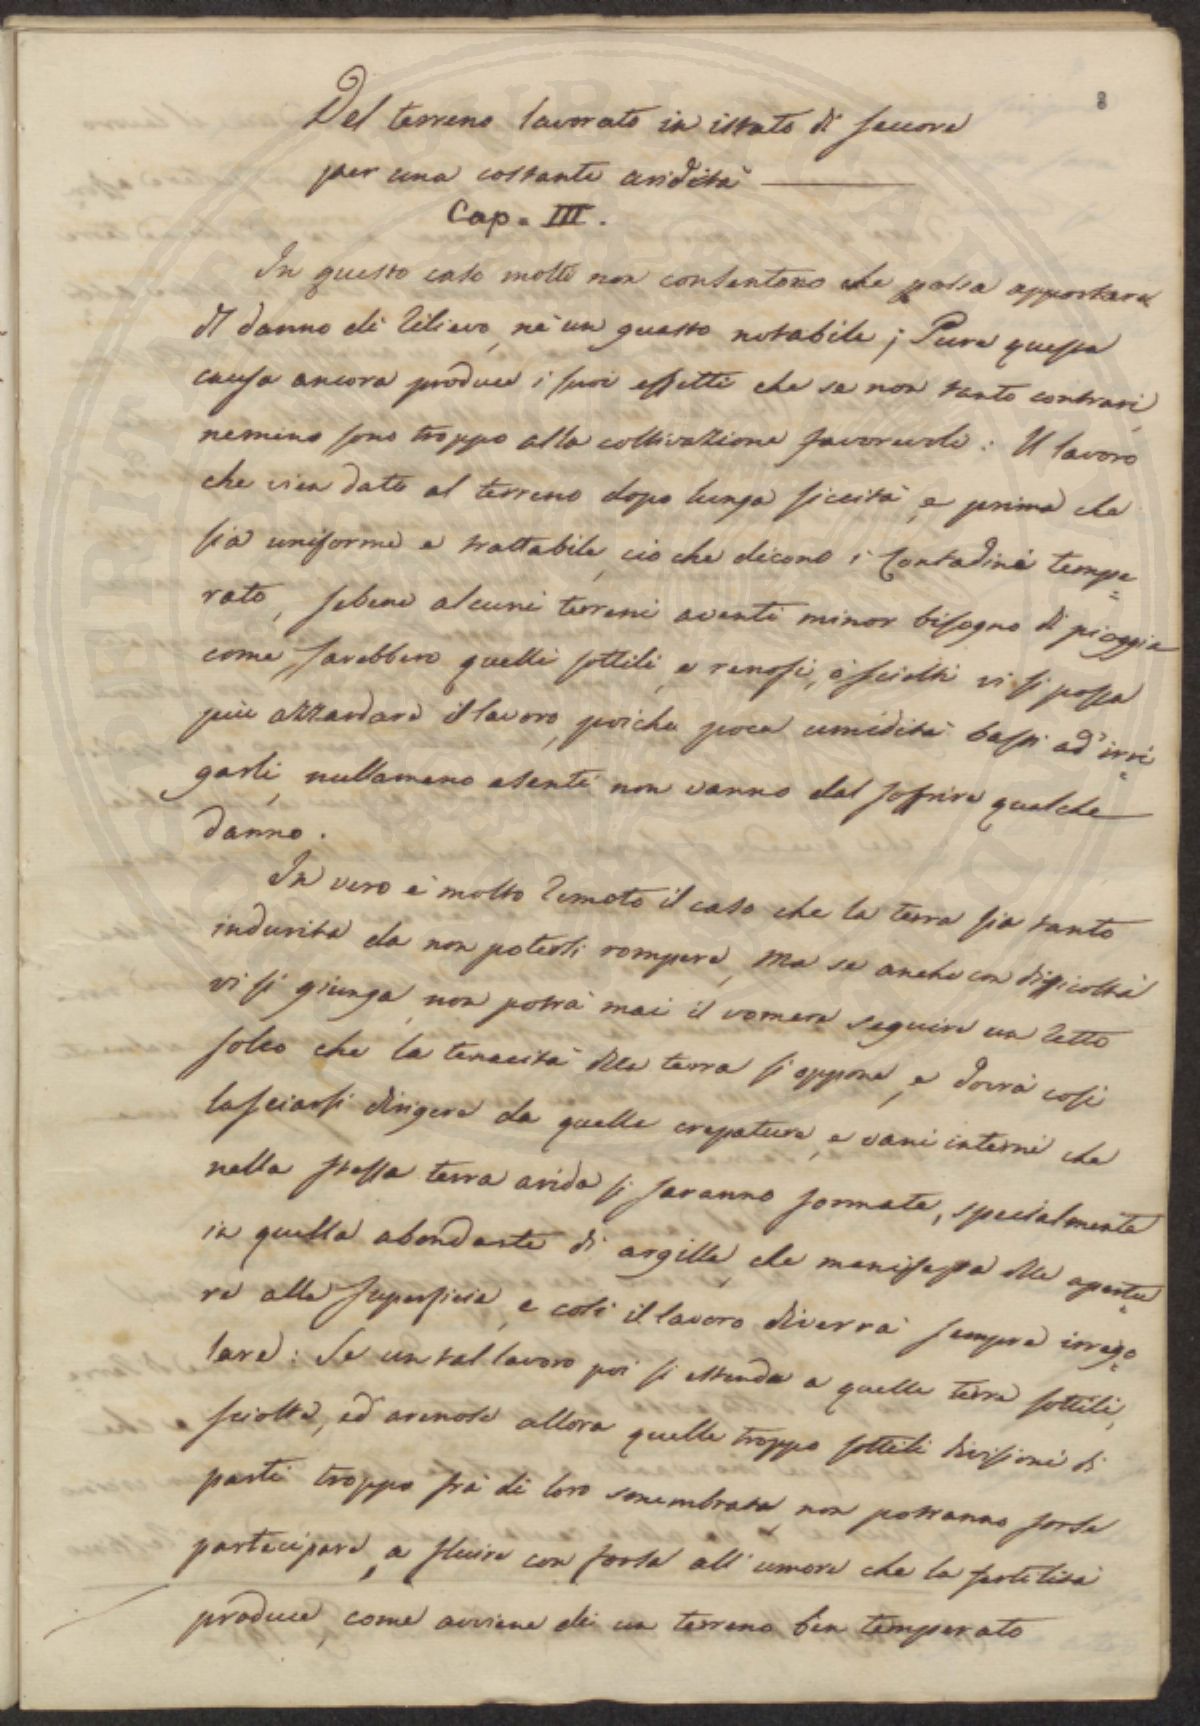 8
Del terreno lavorato in istato di seccore
per una costante aridità
Cap. III.
In questo caso molti non consentono che possa apportare
di danno di rilievo, nè un guasto notabile; Pure questa
causa ancora produce i suoi effetti che se non tanto contrari,
nemeno sono troppo alla coltivazione favorevoli: Il lavoro
che vien dato al terreno dopo lunga siccità, e prima che
sia uniforme e trattabile, ciò che dicono i Contadini tempe=
rato, sebene alcuni terreni aventi minor bisogno di pioggia
come sarebbero quelli sottili, e renosi, o sciolti vi si possa
più azzardare il lavoro, poiche poca umidità basti ad irri=
garli, nullameno esenti non vanno dal soffrire qualche
danno.
In vero è molto remoto il caso che la terra sia tanto
indurita da non poterli rompere, Ma se anche con difficoltà
vi si giunga, non potrà mai il vomere seguire un retto
solco che la tenacità della terra si oppone, e dovrà così
lasciarsi dirigere da quelle crepature, e vani interni che
nella stessa terra arida si saranno formate, specialmente
in quella abondante di argilla, che manifesta delle apertu=
re alla superficie, e così il lavoro diverrà sempre irrego=
lare: Se un tal lavoro poi si estenda a quelle terre sottili,
sciolte, ed arenose allora quelle troppo sottili divisioni di
parti troppo frà di loro smembrate, non potranno forse
partecipare, a fluire con forza all' umore che la fertilità
produce, come avviene di un terreno ben temperato